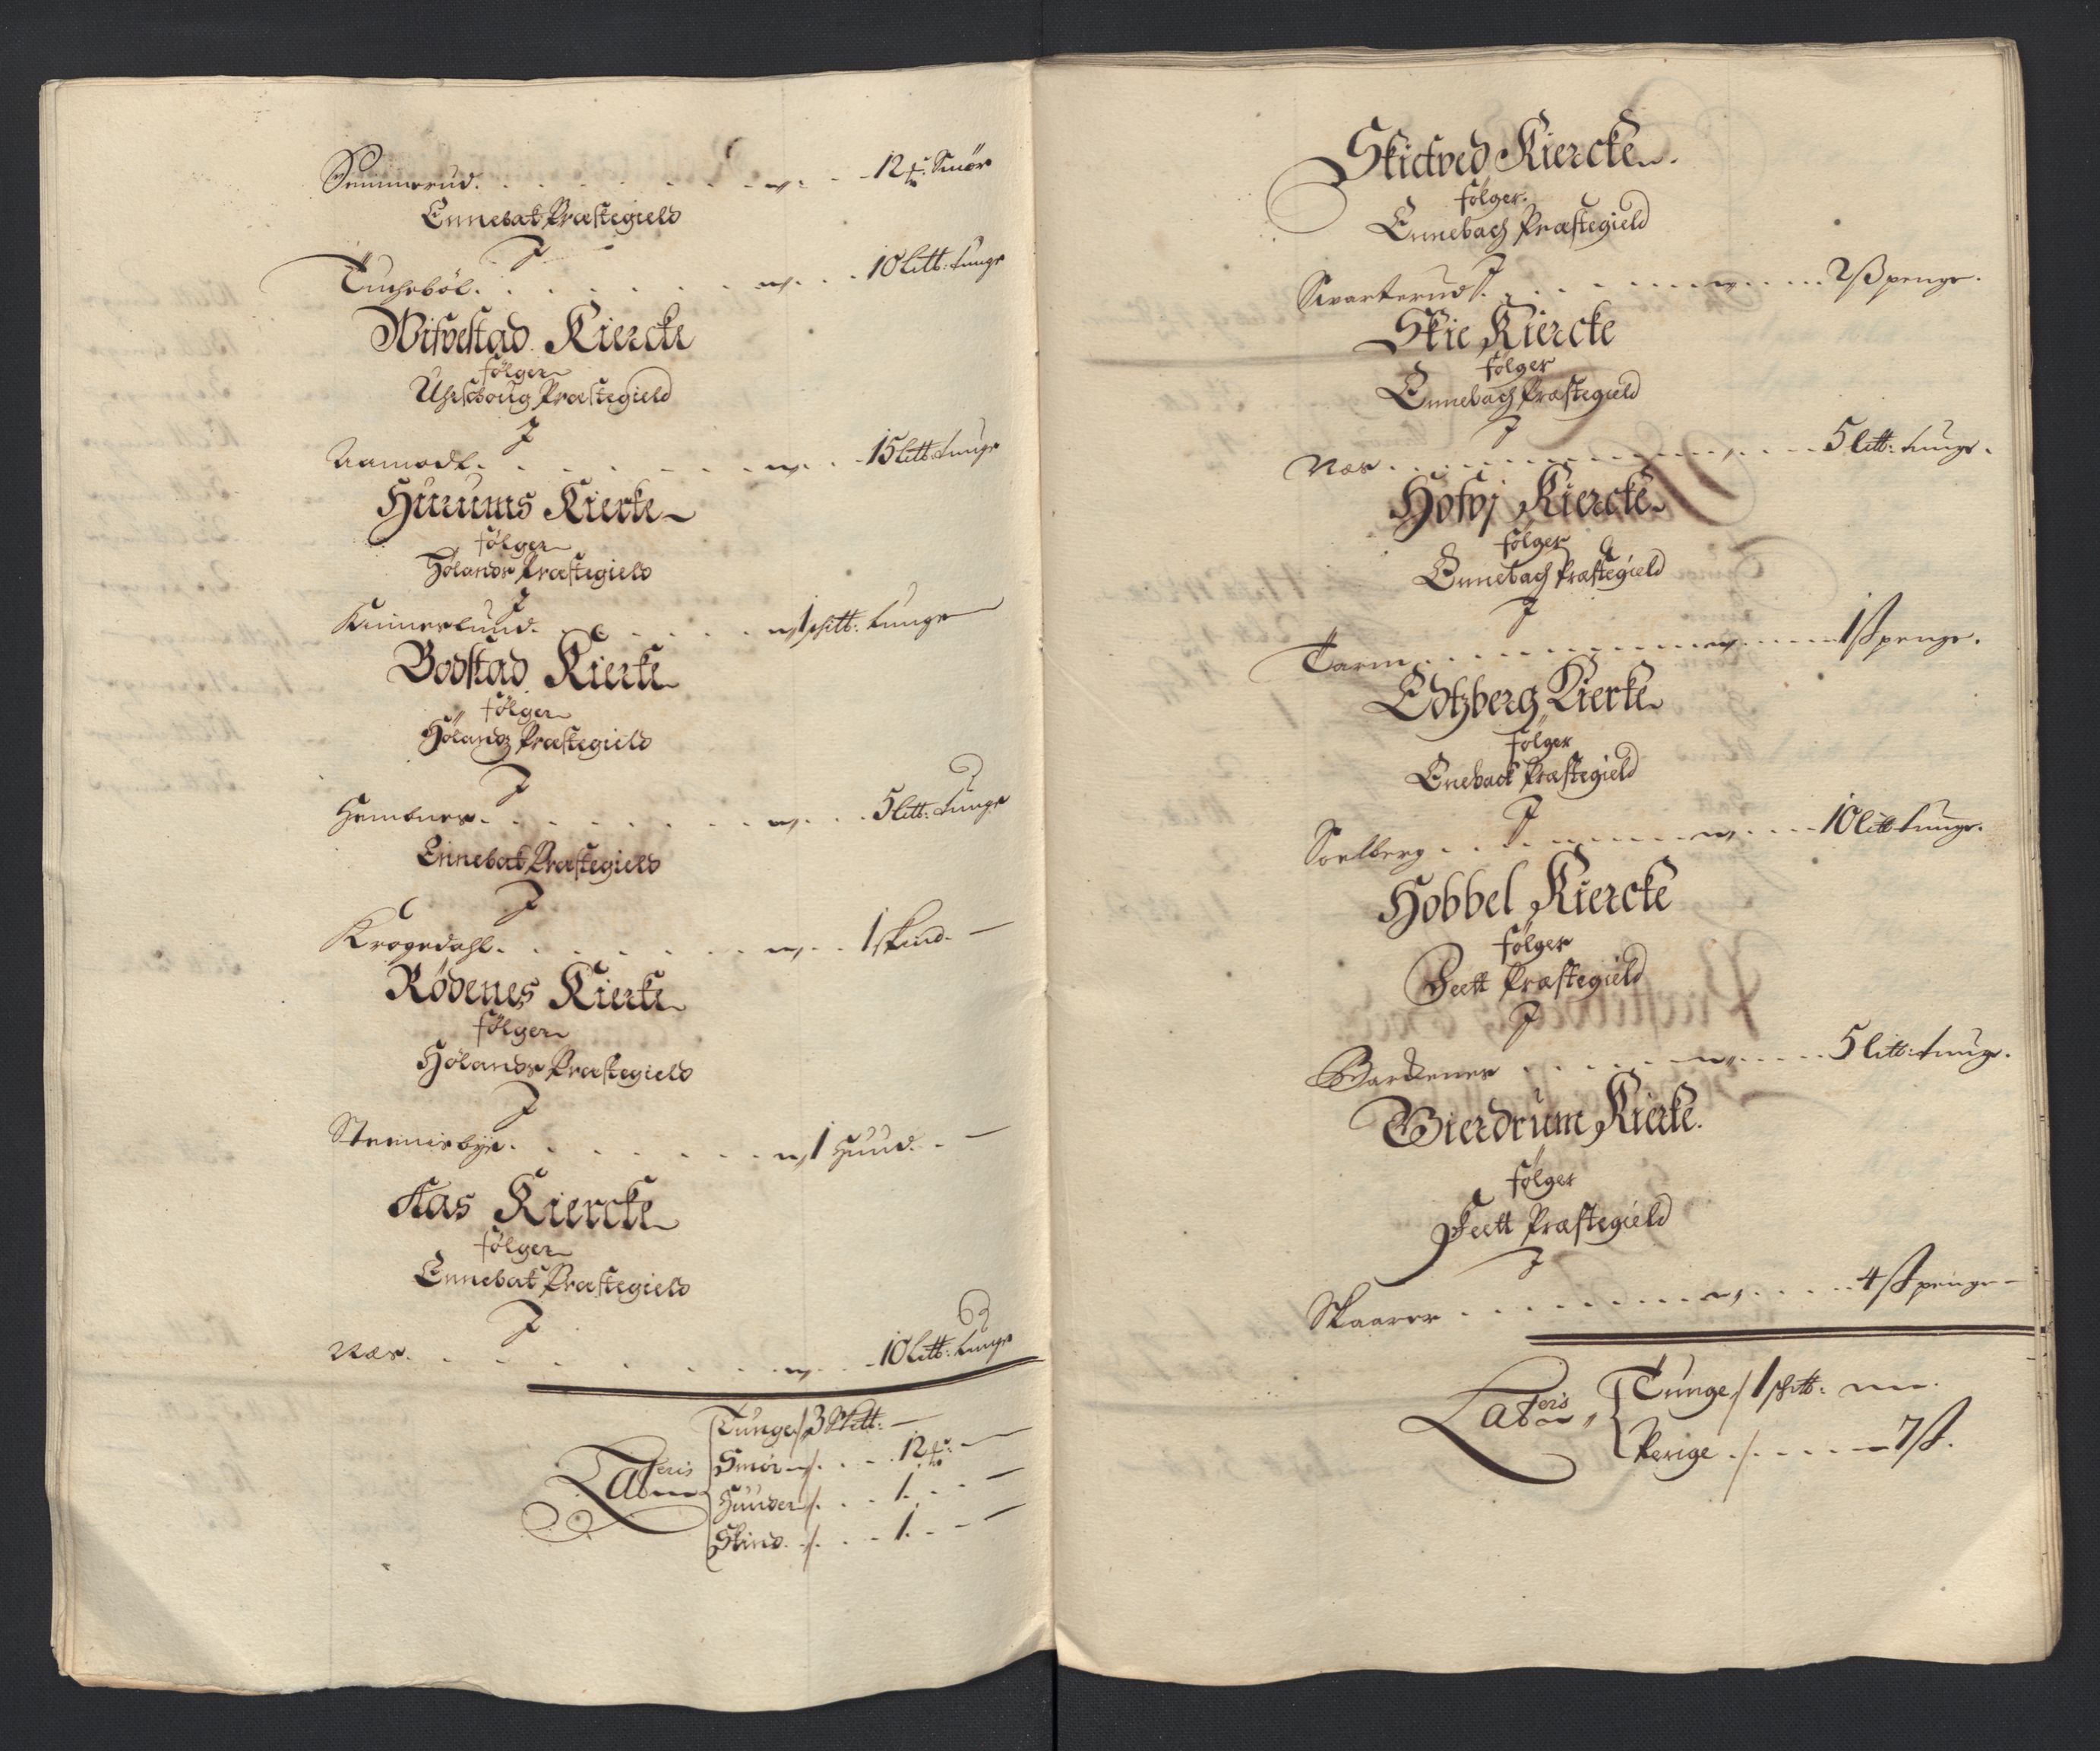 Semmerud. . . . . . . . . 12 ℔: Smör
Ennebak Præstegield
I
Tucheböl. . . . . . . . . 10 litt: tunge
Witvestad Kiercke
følger
Uhrschoug Præstegield
I
Aamodt. . . . . . . . . 15 litt: tunge
Hurums Kierke
følger
Hölands Præstegield
I
Kinnerlund. . . . . . . . 1 skitt: tunge
Bodstad Kierke
følger
Hölandz Præstegield
I
Hembnes. . . . . . . . . 5 litt: tunge
Ennebak Præstegield
I
Krogedahl. . . . . . . . . 1 skind. —
Rödenes Kierke
følger
Hölands Præstegield
I
Strømsbye. . . . . . . . . 1 Huud. . —
Aas Kiercke
følger
Ennebak Præstegield
I
Næs. . . . . . . . . 10 litt: tunge
Lateris
Tunge /. 3 Skitt: —
Smör /. . . . 12 ℔: —
Huuder /. . . . 1. . . —
Skind. /. . . 1. . . —
Skictved Kiercke
følger.
Ennebach Præstegield
I
Swarterud. . . . . . . . . 2 ß penge.
Skie Kiercke
følger
Ennebach Præstegield
I
Næs. . . . . . . . . 5 litt: tunge.
Hofvj Kiercke
følger
Ennebach Præstegield
I
Tarm. . . . . . . . . 1 ß penge.
Edtzberg Kierke
følger
Eneback Præstegield
I
Soelberg. . . . . . . . . 10 litt tunge.
Hobbel Kiercke
følger
Feett Præstegield
I
Bardenes . . . . . . . . . 5 litt: tunge.
Gierdrum Kierke.
følger
Feett Præstegield
I
Skaarer . . . . . . . . . 4 ß penge —
Lateris
Tunge / 1 skitt:
Penge ./. . . . . 7 ß.